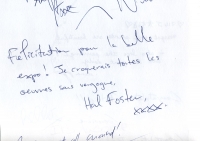 Felicitation pour la belle
expo! Je croquerais toutes les
oeuvres sans vergogne,
Hal Foster,
xxxx.